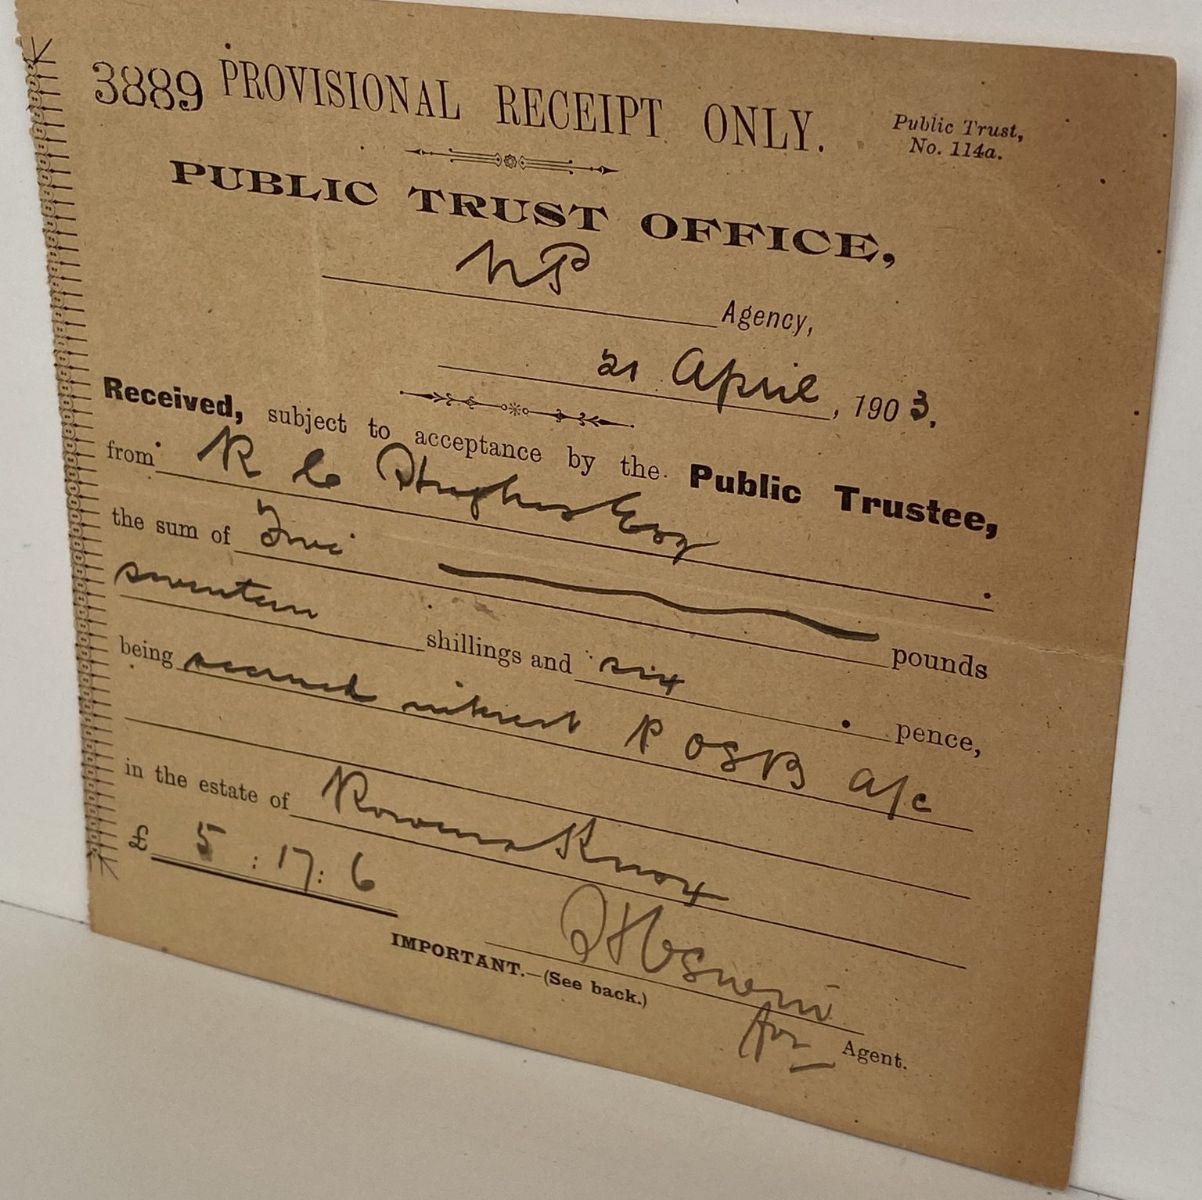 3889 PROVISIONAL RECEIPT ONLY.
Public Trust,
No. 114a.
PUBLIC TRUST OFFICE,
NP Agency,
21 April, 1903.
Received, subject to acceptance by the Public Trustee,
from R C Hughes Esq
the sum of Five pounds
seventeen shillings and six pence,
being accrued interest P OSB a/c
in the estate of Rowena Knox
£ 5 : 17 : 6
IMPORTANT.—(See back.)
for Agent.